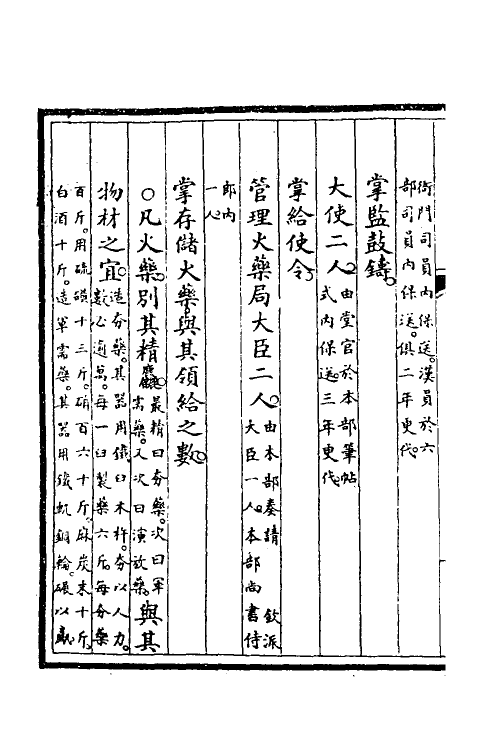 衙門司員內保送。漢員於六
部司員內保送。俱二年更代。
掌監鼓鑄。
大使二人。由堂官於本部筆帖
式內保送。三年更代。
掌給使令。
管理火藥局大臣二人。由本部奏請 欽派
大臣一人。本部尚書侍
郎內
一人。
掌存儲火藥與其領給之數。
○凡火藥。別其精麤。最精曰夯藥。次曰軍
需藥。又次曰演放藥。與其
物材之宜。造夯藥。其器用鐵臼木杵。夯以人力。
數必逾萬。每一臼製藥六斤。每夯藥
百斤。用硫磺十三斤。硝百六十斤。麻炭末十斤。
白酒十斤。造軍需藥。其器用鐵 銅輪。碾以